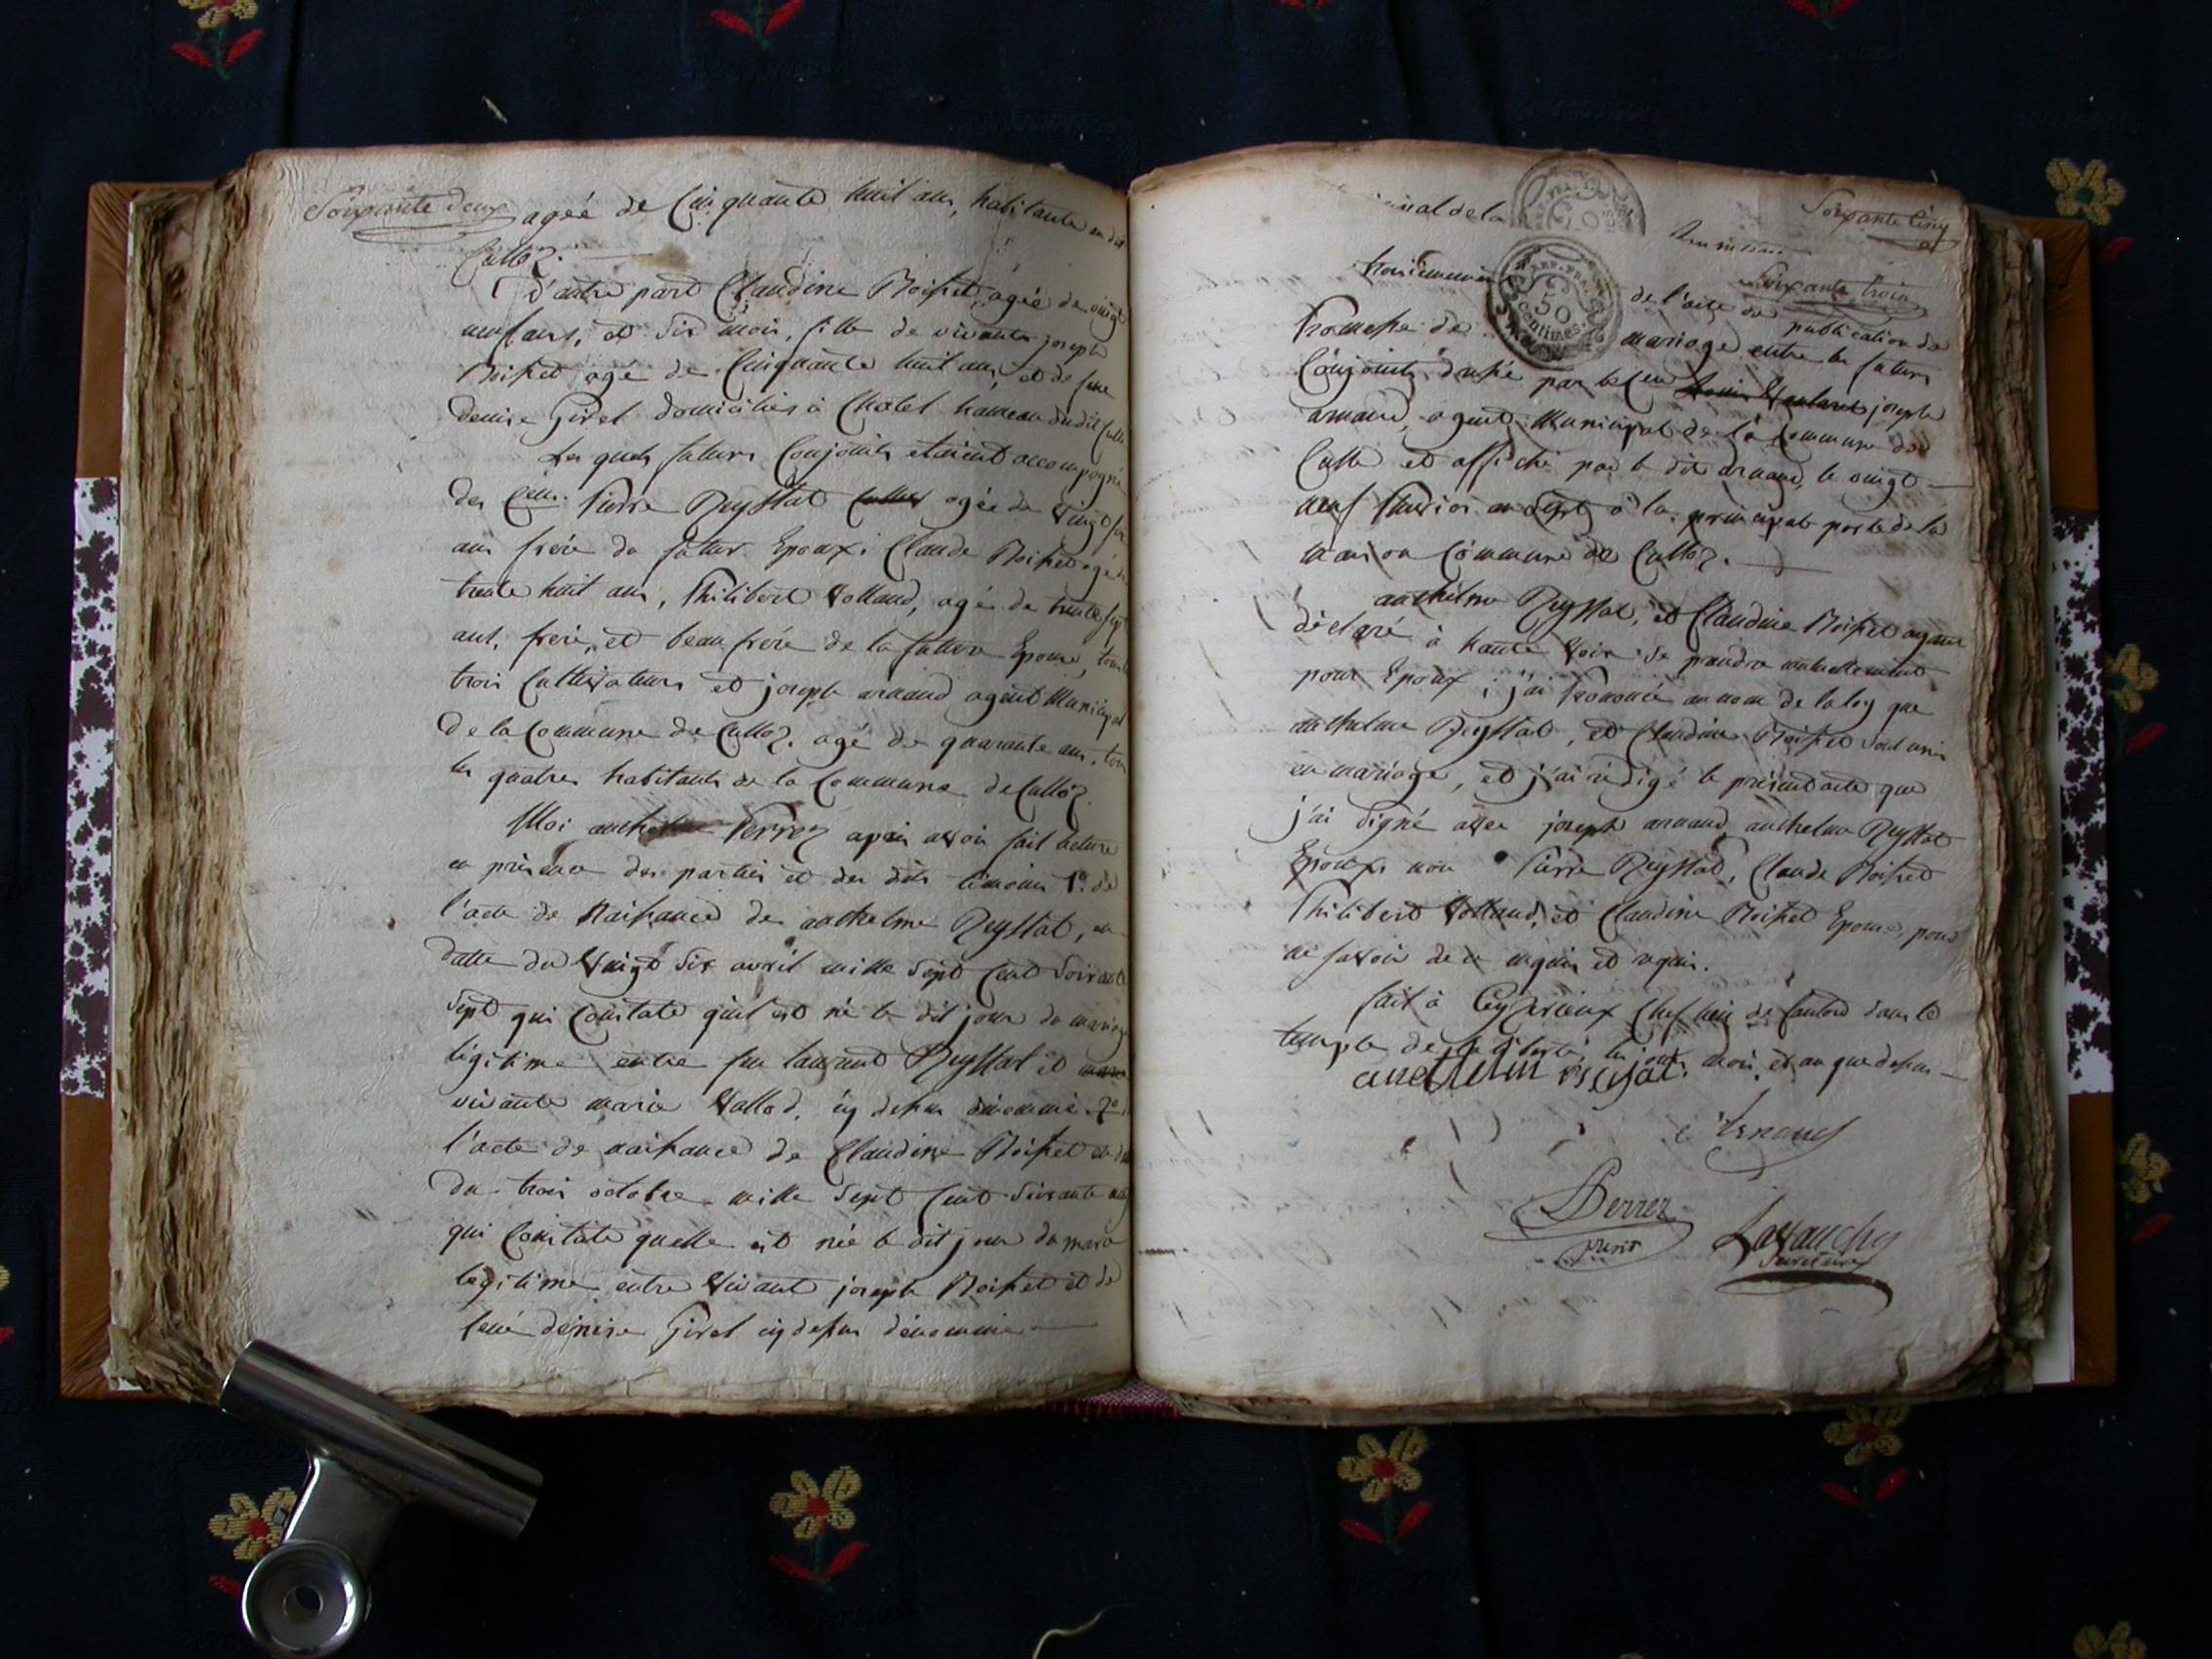 Soixante deux
agée de Cinquante huit ans, habitante en dit
Culloz.
D'autre part Claudine Moisset, agée de vingt
neuf ans, et six mois, fille de vivants joseph
Moisset, agé de Cinquante huit ans, et de feue
denise Girel domiciliés à Chatel hameau dudit
Les quels futurs Conjoints etaient accompagné
des Cens. Pierre Reystat agée de Vingt six
ans frere du futur Epoux, Claude Moisset agé de
trente huit ans, Philibert Volland, agé de trente sept
ans, frere, et beau frere de la future Epouse, tous
trois Cultivateurs et joseph arnaud agent Municipal
de la Commune de Culloz. agé de quarante ans, tous
les quatres habitants de la Commune de Culloz.
Moi anthelme Perrez après avoir fait lecture
en présence des parties et des dits témoins 1°. de
l'acte de Naissance de anthelme Reystat, en
datte du Vingt six avril mille sept Cent soixante
sept qui Constate qu'il est né le dit jour du mariage
légitime entre feu laurand Reystat et
vivante marie Vallod, cy dessus dénommé. 2°
l'acte de naissance de Claudine Moisset en date
du trois octobre mille sept Cent soixante neuf
qui Constate quelle est née le dit jour du maria
légitime entre Vivant joseph Moisset et de
feue dénise Girel cy dessus dénommé
Soixante Cinq
Soixante trois
troisiemement de l'acte de publication de
Promesse de mariage entre les futurs
Conjoints dressé par le Cen joseph
arnaud, agent Municipal de la Commune de
Culle et affiché par le dit arnaud, le vingt
neuf an Sept à la principale porte de la
maison Commune de Culloz.
anthelme Reystat, et Claudine Moisset ayant
déclaré à haute Voix se prendre mutuellement
pour Epoux, j'ai Prononcé au nom de la loy que
anthelme Reystat, et Claudine Moisset sont unis
en mariage, et j'ai rédigé le présent acte que
j'ai signé avec joseph arnaud, anthelme Reystat
Epoux, non Pierre Reystat, Claude Moisset
Philibert Volland, et Claudine Moisset Epouse, pour
ne savoir de ce enquis et requis.
fait à Ceyzerieux Chef lieu de Canton dans le
temple de la liberté, les jour, mois, et an que dessus
REP. FRA.
50
centimes.
Perrez
Présid
Lavauchy
Secrétaire